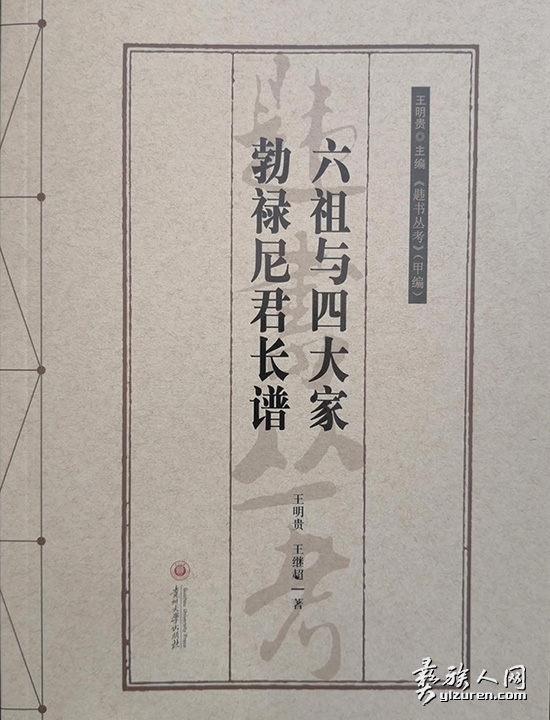 王明贵◎主编 《韪书丛考》（甲编）
六祖与四大家
勃禄尼君长谱
王明贵 王继超 著
贵州大学出版社
Guizhou University Press
彝族人网
yizuren.com